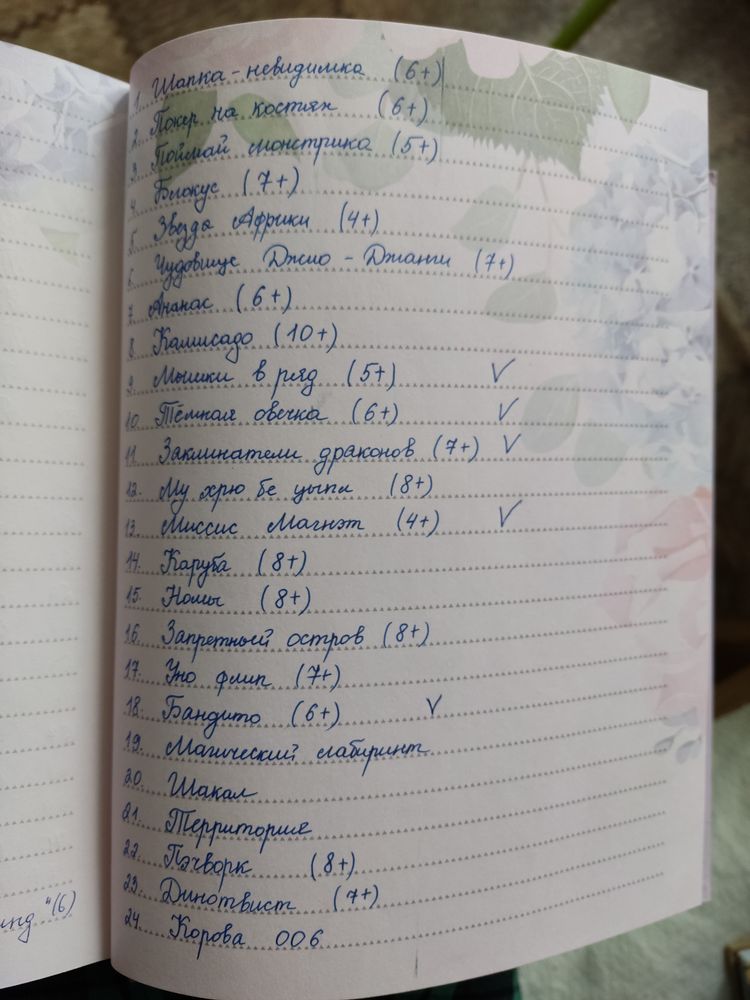 1. Шапка-невидимка (6+)
2. Покер на костях (6+)
3. Поймай монстрика (5+)
4. Блокус (7+)
5. Звезда Африки (4+)
6. Чудовище Джио-Джанги (7+)
7. Ананас (6+)
8. Камисадо (10+)
9. Мышки в ряд (5+) ✓
10. Тёмная овечка (6+) ✓
11. Заклинатели драконов (7+) ✓
12. Му хрю бе цыпа (8+)
13. Миссис Магнэт (4+) ✓
14. Каруба (8+)
15. Номы (8+)
16. Запретный остров (8+)
17. Уно флип (7+)
18. Бандито (6+) ✓
19. Магический лабиринт
20. Шакал
21. Территория
22. Пэчворк (8+)
23. Динотвист (7+)
24. Корова 006
"(6)